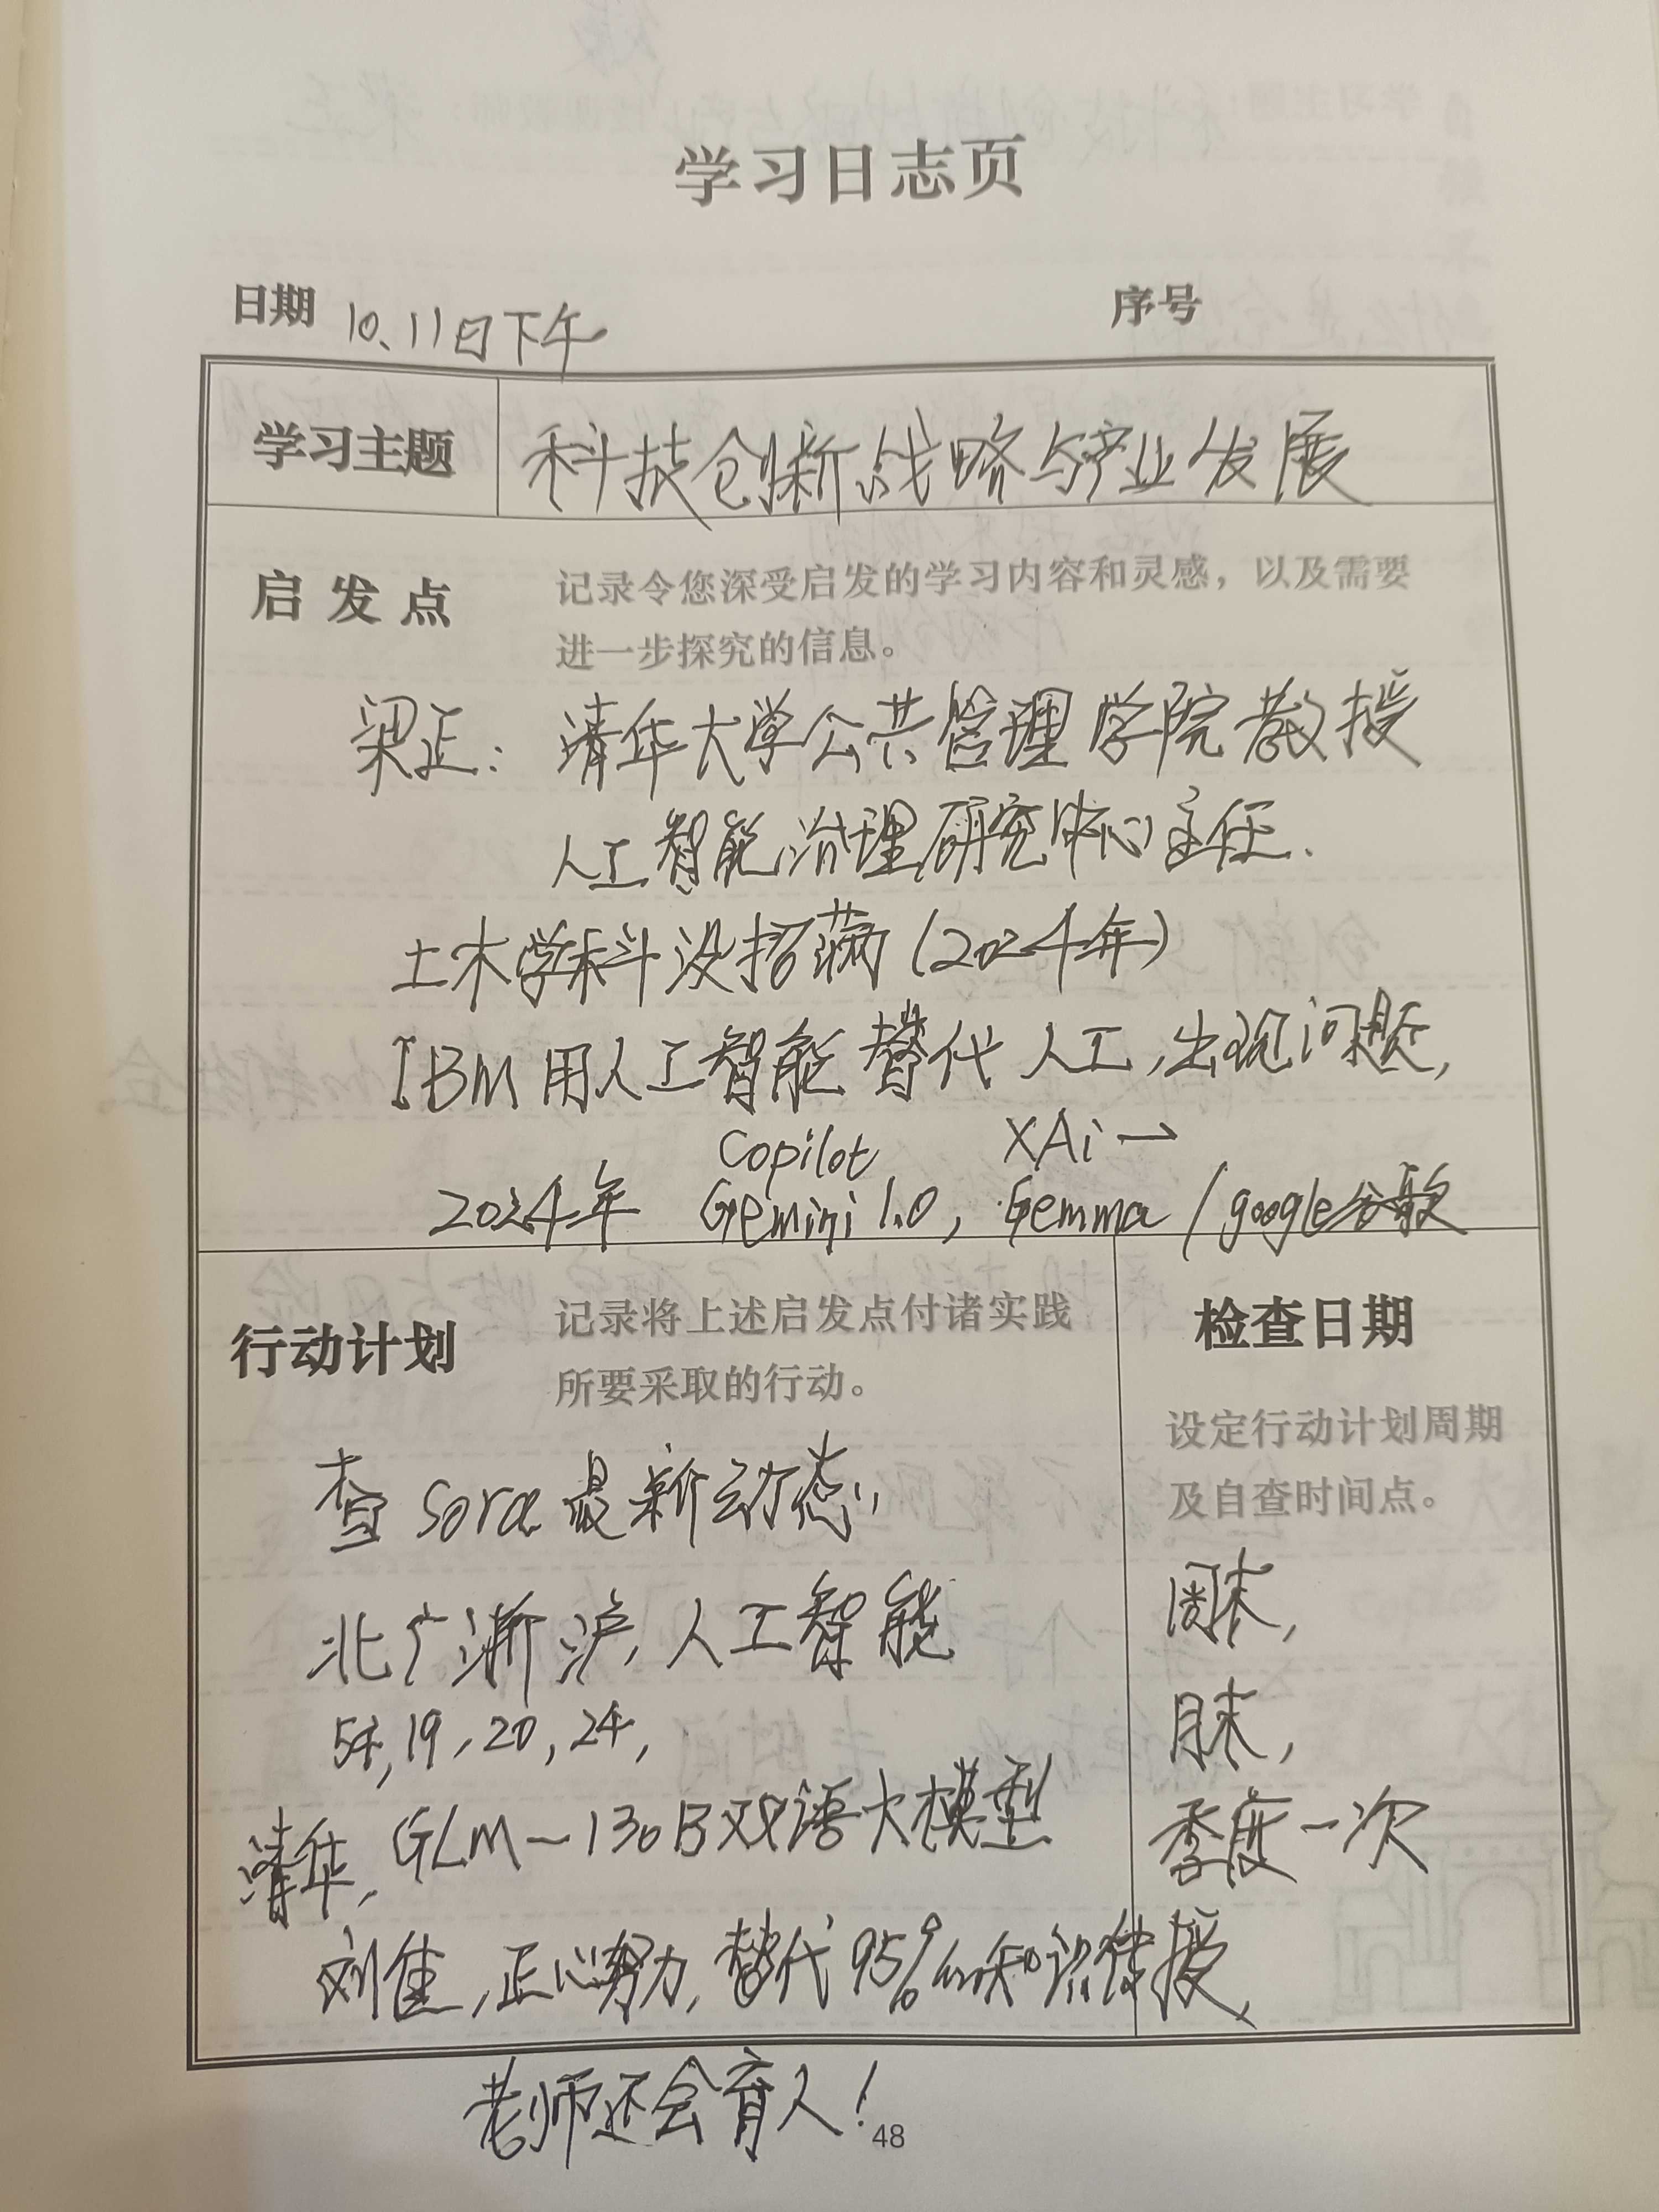 学习日志页
日期 10、11日下午 序号
学习主题 科技创新战略与产业发展
启发点 记录令您深受启发的学习内容和灵感，以及需要
进一步探究的信息。
梁正：清华大学公共管理学院教授
人工智能治理研究中心主任.
土木学科没招满(2024年)
IBM用人工智能替代人工,出现问题,
Copilot XAi→
2024年 Gemini 1.0, Gemma/google谷歌
行动计划 记录将上述启发点付诸实践
所要采取的行动。
查Sora最新动态,
北广浙沪,人工智能
54,19,20,24,
清华,GLM-130B双语大模型
刘佳,正心努力,替代95%的知识传授,
老师还会育人!
检查日期
设定行动计划周期
及自查时间点。
周末,
月末,
季度一次
48